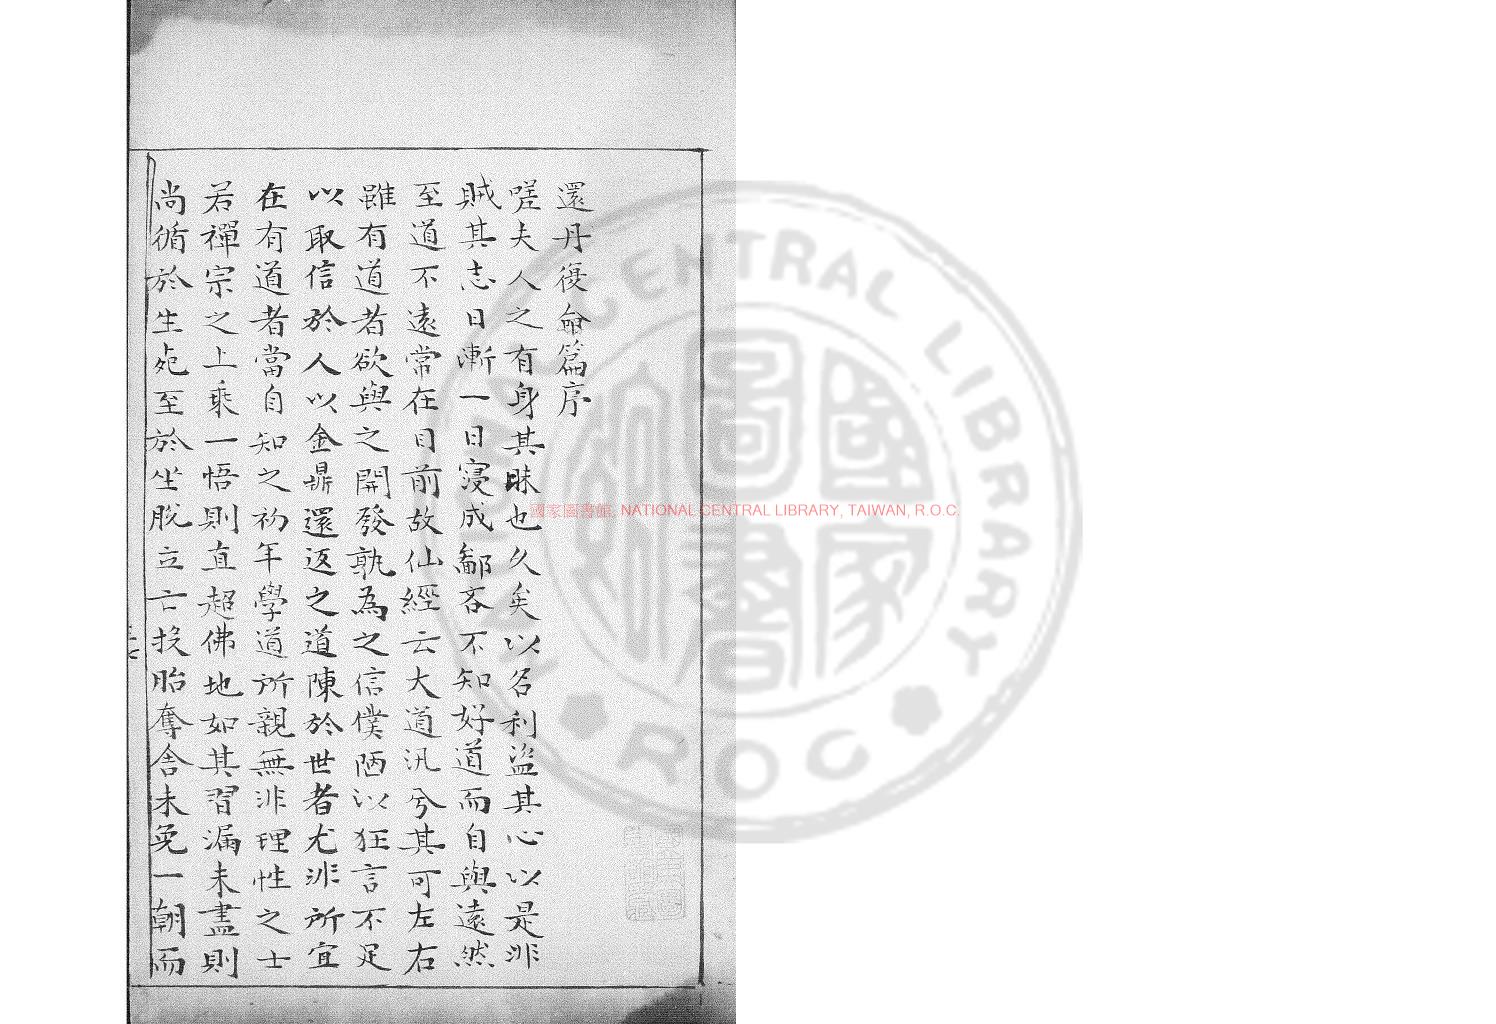 還丹復命篇序
嗟夫人之有身其昧也久矣以名利盜其心以是非
賊其志日漸一日寖成鄙吝不知好道而自與遠然
至道不遠常在目前故仙經云大道汎兮其可左右
雖有道者欲與之開發孰為之信僕陋以狂言不足
以取信於人以金鼎還返之道陳於世者尤非所宜
在有道者當自知之初年學道所親無非理性之士
若禪宗之上乘一悟則直超佛地如其習漏未盡則
尚循於生死至於坐脫立亡投胎奪舍未免一朝而
國家圖書館, NATIONAL CENTRAL LIBRARY, TAIWAN, R.O.C.
NATIONAL CENTRAL LIBRARY
ROC
國家圖書館